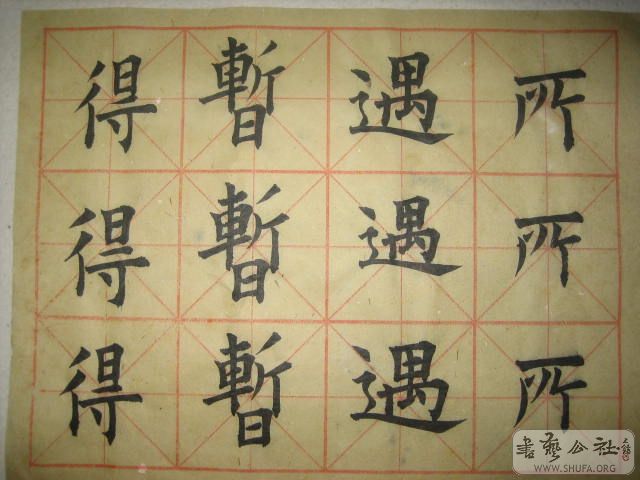 所所所
遇遇遇
暫暫暫
得得得
書藝公社
WWW.SHUFA.ORG